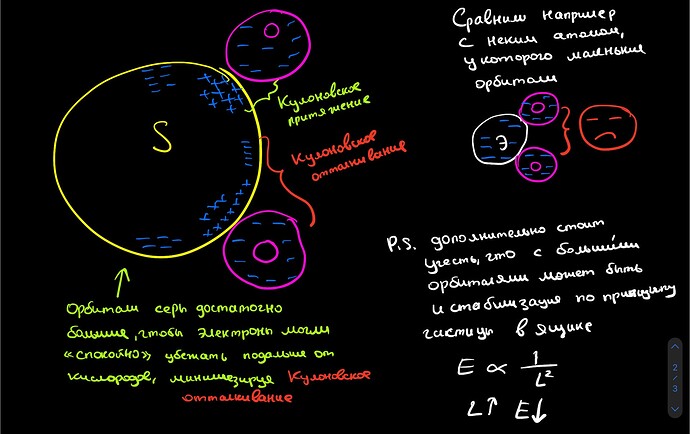 Сравним например
с неким атомом,
у которого маленькие
орбитали
Кулоновское
притяжение
S
Кулоновское
отталкивание
Э
Орбитали серы достаточно
большие, чтобы электроны могли
«спокойно» убежать подальше от
кислородов, минимизируя Кулоновское
отталкивание
P.S. дополнительно стоит
учесть, что с большими
орбиталями может быть
и стабилизация по принципу
частицы в ящике
E ∝ 1/L²
L↑ E↓
2
/
3